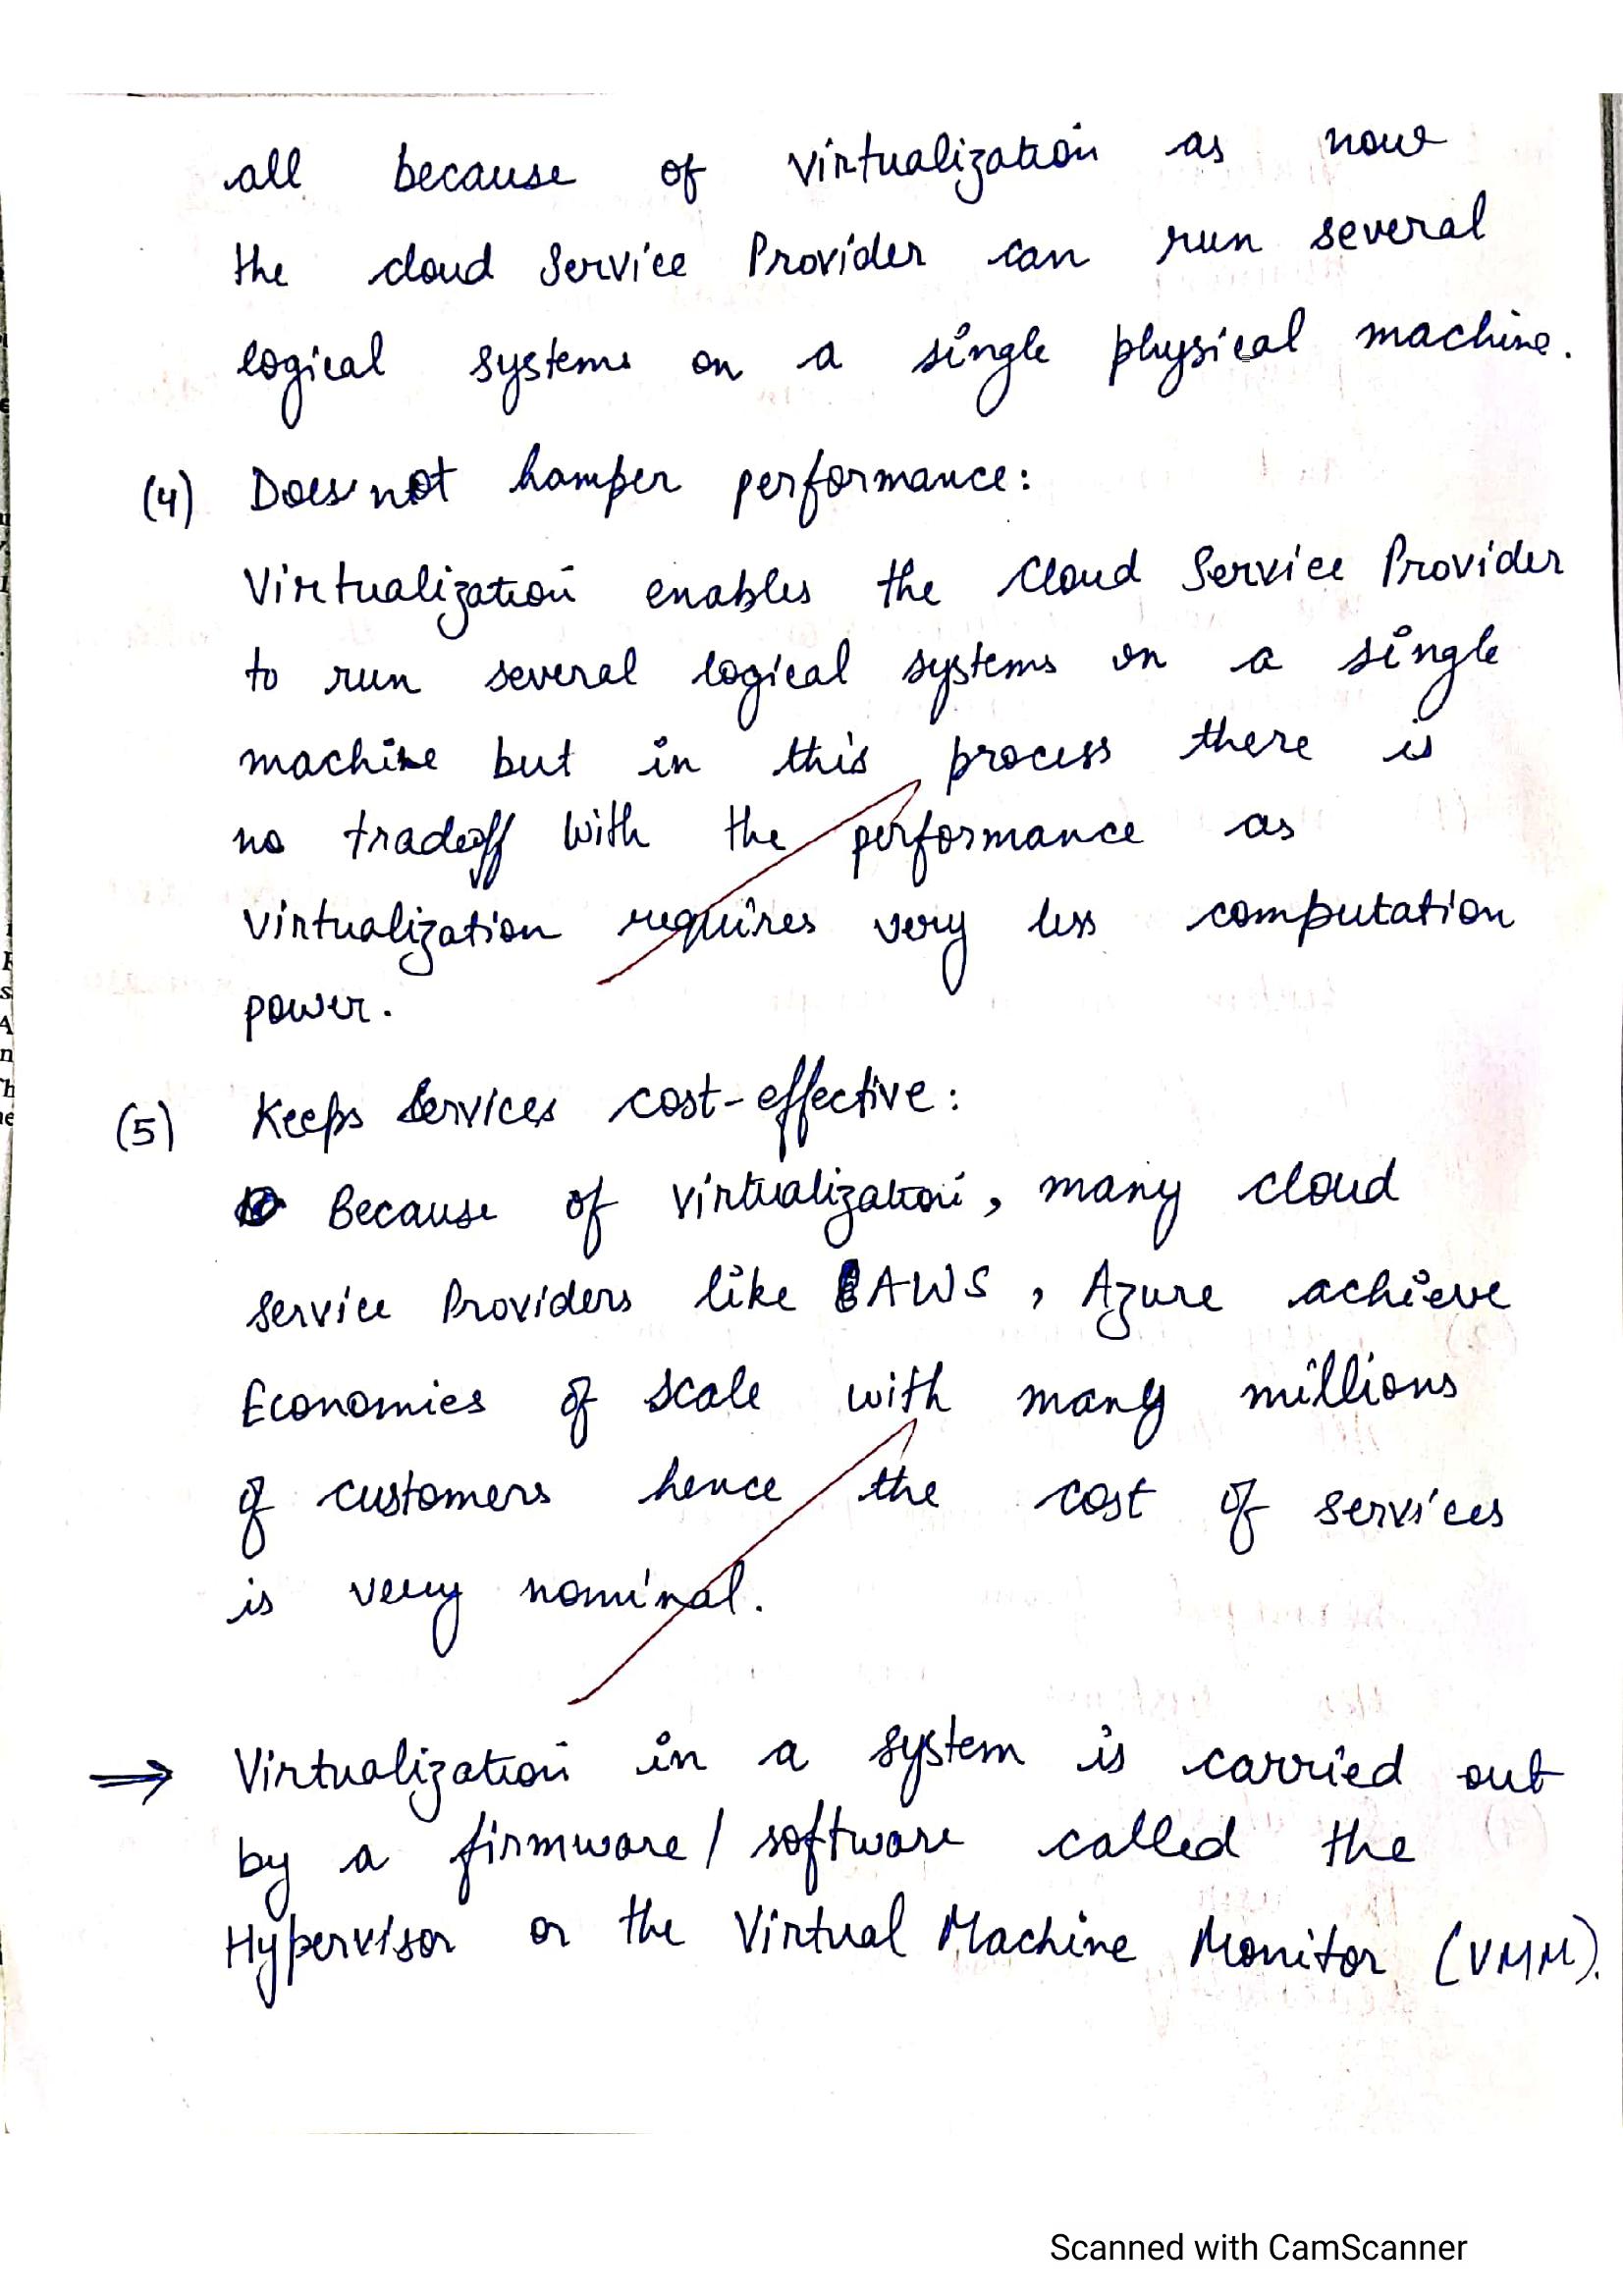 all because of virtualization as now
the cloud Service Provider can run several
logical systems on a single physical machine.
(4) Does not hamper performance:
Virtualization enables the Cloud Service Provider
to run several logical systems on a single
machine but in this process there is
no tradeoff with the performance as
virtualization requires very less computation
power.
(5) Keeps Services cost-effective:
Because of virtualization, many cloud
service Providers like AWS, Azure achieve
Economies of scale with many millions
of customers hence the cost of services
is very nominal.
⇒ Virtualization in a system is carried out
by a firmware/ software called the
Hypervisor or the Virtual Machine Monitor (VMM).
Scanned with CamScanner